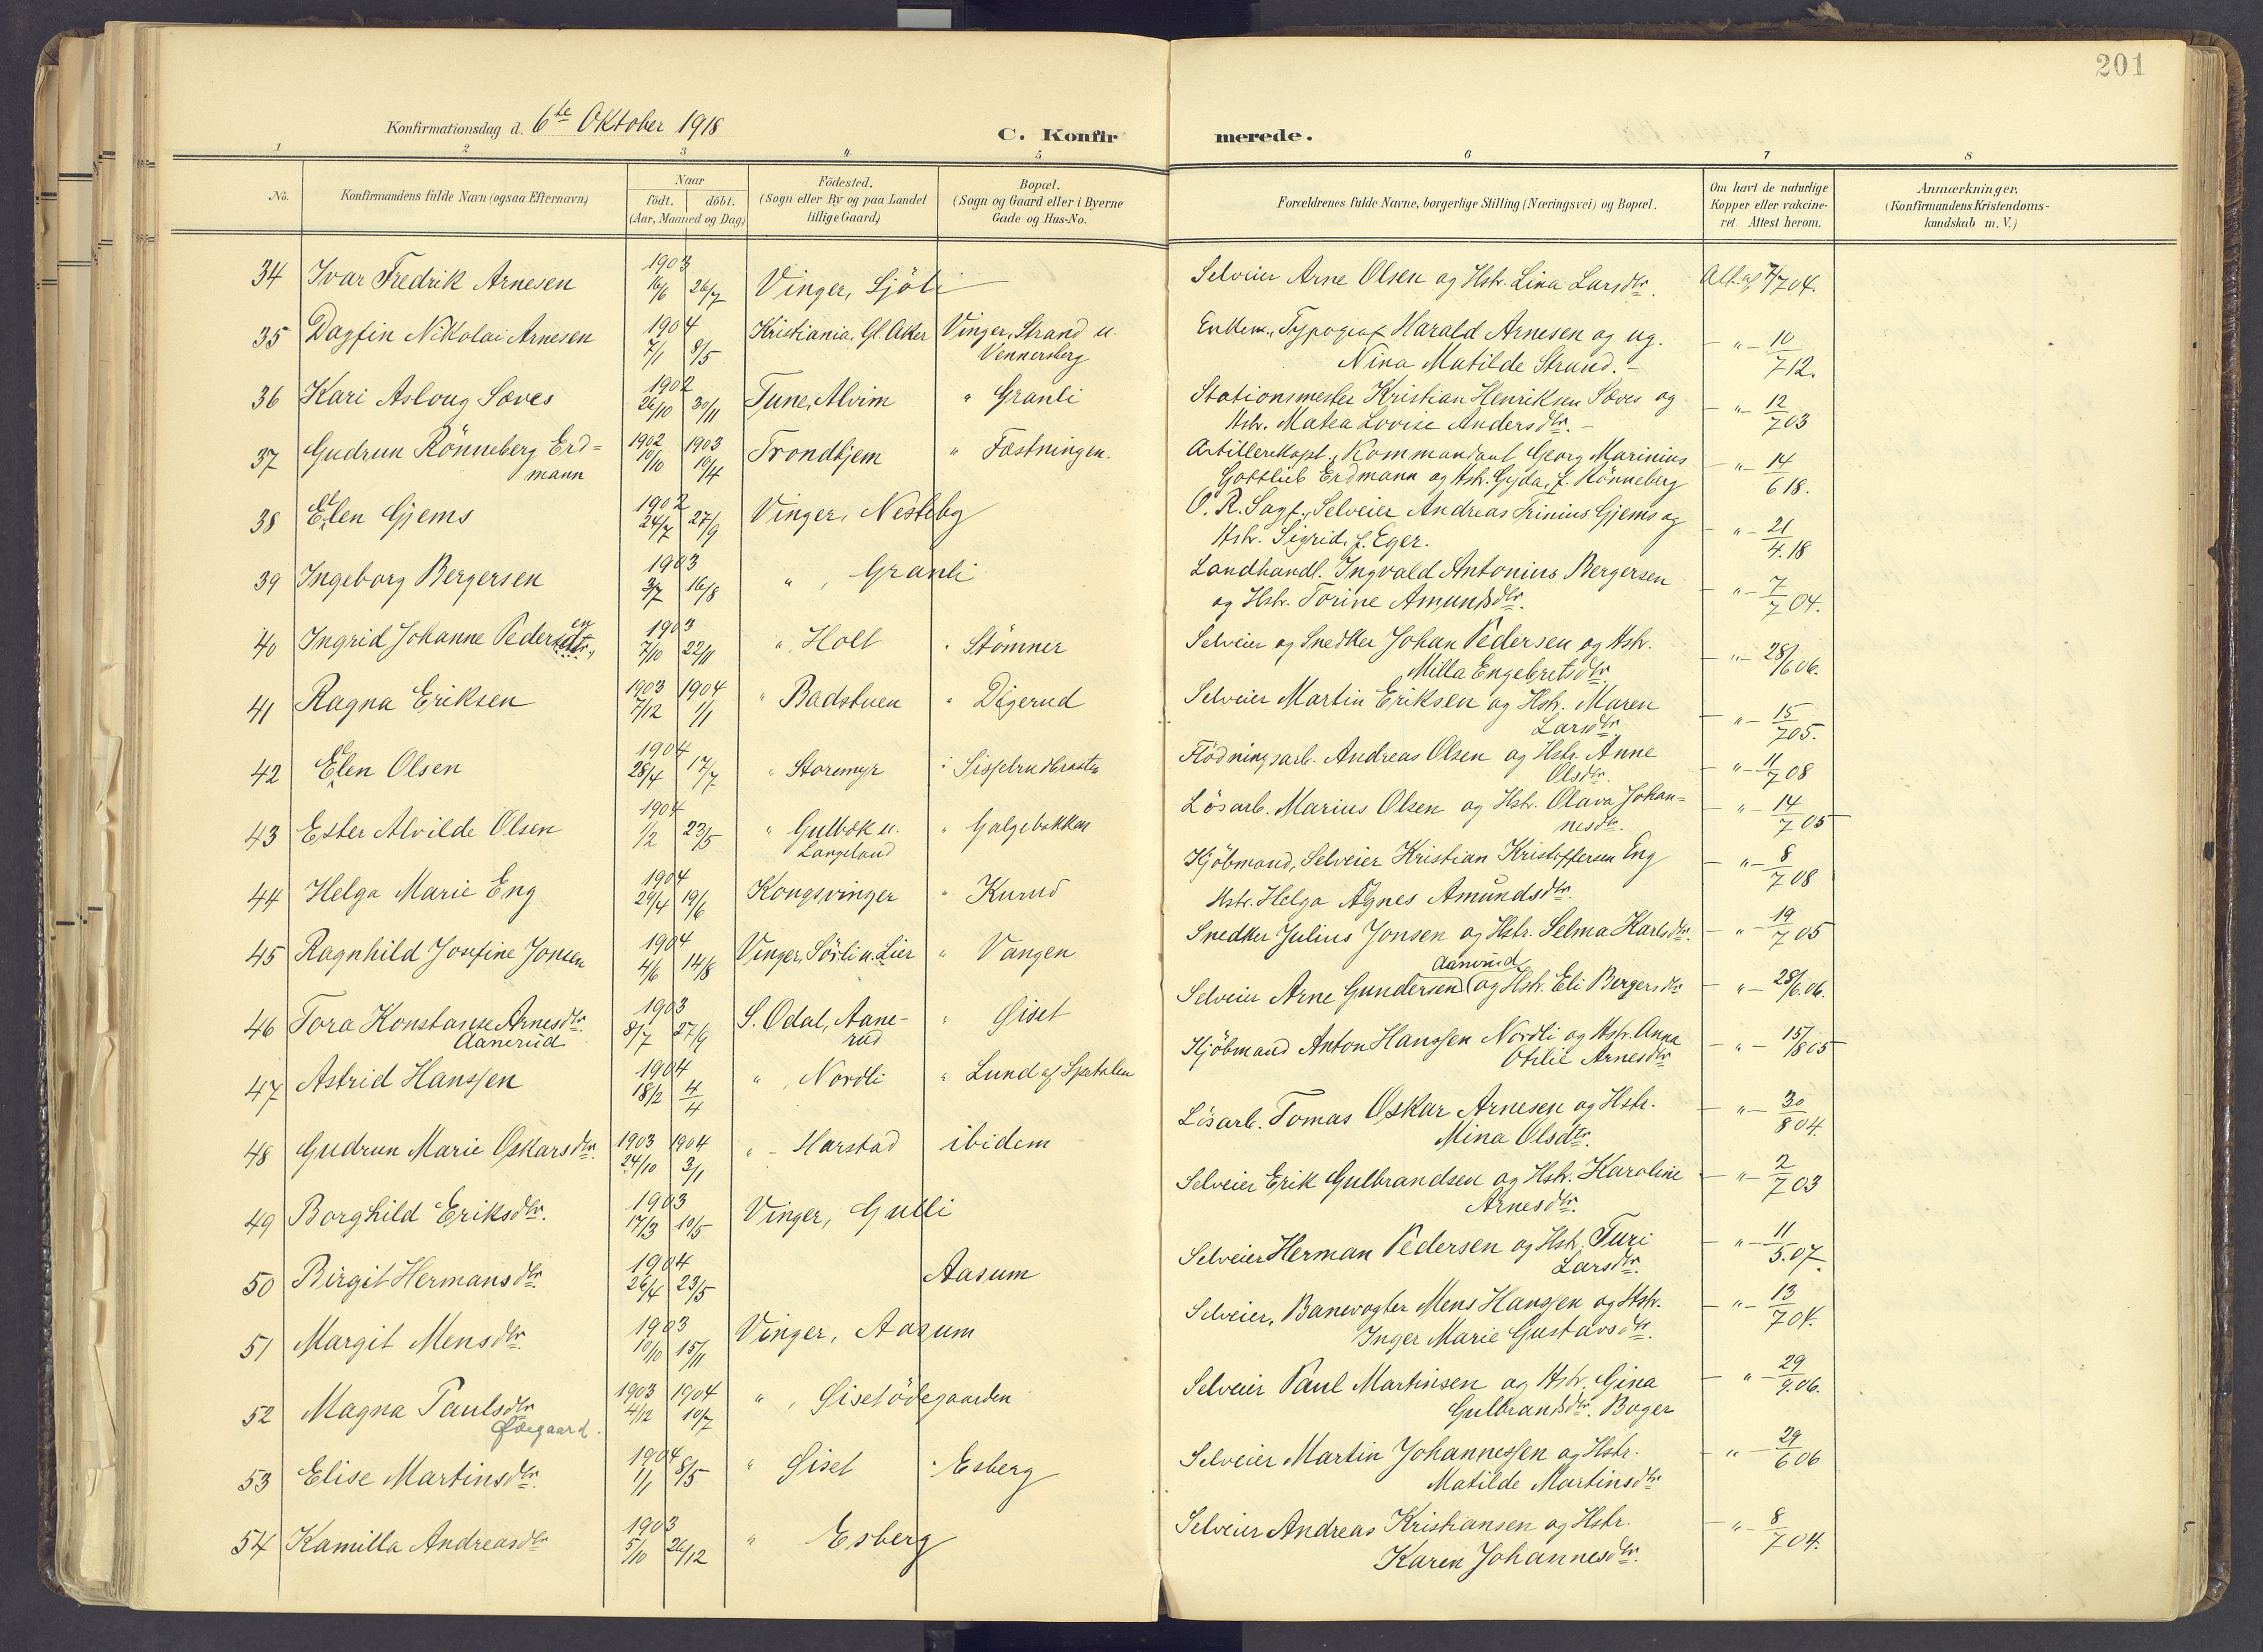 201
Konfirmationsdag d. 6te Oktober 1918
C. Konfirmerede.
1 2 3 4 5 6 7 8
No.
Konfirmandens fulde Navn (ogsaa Efternavn)
Naar
födt. döbt.
(Aar, Maaned og Dag)
Födested.
(Sogn eller By og paa Landet
tillige Gaard)
Bopæl.
(Sogn og Gaard eller i Byerne
Gade og Hus-No.
Forældrenes fulde Navne, borgerlige Stilling (Næringsvei) og Bopæl.
Om havt de naturlige
Kopper eller vakcine-
ret. Attest herom.
Anmærkninger.
(Konfirmandens Kristendoms-
kundskab m. V.)
34 Ivar Fredrik Arnesen 1903 16/6 26/7 Vinger, Sjöli
Selveier Arne Olsen og Hstr. Lina Larsdtr. Att. af 7/7 04.
35 Dagfin Nikolai Arnesen 1904 7/1 8/5 Kristiania, Gl. Aker Vinger, Strand u.
Vennersberg
Enkem., Typograf Harald Arnesen og ug.
Nina Matilde Strand. - " - 10/7 12.
36 Kari Asloug Soves 1902 26/10 30/11 Tune, Alvim " Granli
Stationsmester Kristian Henriksen Soves og
Hstr. Matea Lovise Andersdtr. - " - 12/7 03
37 Gudrun Rönneberg Erd=
mann 1902 10/10 1903 10/4 Trondhjem " Fæstningen.
Artillerikapt., Kommandant Georg Marinius
Gottlieb Erdmann og Hstr. Gyda, f. Rönneberg - " - 14/6 18.
38 Ellen Gjems 1902 24/7 27/9 Vinger, Nesteby
O. R. Sagf., Selveier Andreas Trinius Gjems og
Hstr. Sigrid, f. Eger. - " - 21/4. 18
39 Ingeborg Bergersen 1903 3/7 16/8 " , Granli
Landhandl. Ingvald Antonius Bergersen
og Hstr. Torine Amundsdtr. - " - 7/7 04.
40 Ingrid Johanne Pedersdtr. en 1903 7/10 22/11 " , Holt " Stömner
Selveier og Snedker Johan Pedersen og Hstr.
Milla Engebretsdtr. - " - 28/6 06.
41 Ragna Eriksen 1903 7/12 1904 1/1 " Badstuen " Digerud
Selveier Martin Eriksen og Hstr. Maren
Larsdtr. - " - 15/7 05.
42 Ellen Olsen 1904 28/4 17/7 " Storemyr
Flödningsarb. Andreas Olsen og Hstr. Anne
Olsdtr. - " - 11/7 08
43 Ester Alvilde Olsen 1904 1/2 23/5 " Gulbæk u.
Langeland " Galgebakken
Lösarb. Marius Olsen og Hstr. Olava Johan=
nesdtr. - " - 14/7 05
44 Helga Marie Eng 1904 29/4 19/6 Kongsvinger " Kurud
Kjöbmand, Selveier Kristian Kristoffersen Eng
Hstr. Helga Agnes Amundsdtr. - " - 8/7 08
45 Ragnhild Josefine Jonsen 1904 4/6 14/8 Vinger, Sörli u. Lier " Vangen
Snedker Julius Jonsen og Hstr. Selma Karlsdtr. - " - 19/7 05
46 Tora Konstanse Arnesdtr.
Aanerud 1903 8/7 27/9 S. Odal, Aane-
rud " Giset
Aanerud
Selveier Arne Gundersen og Hstr. Eli Bergersdtr - " - 28/6. 06.
47 Astrid Hanssen 1904 18/2 4/4 " , Nordli " Lund af Spetalen
Kjöbmand Anton Hanssen Nordli og Hstr. Anna
Otilie Arnesdtr - " - 15/8 05
48 Gudrun Marie Oskarsdtr. 1903 24/10 1904 3/1 " - Harstad ibidem
Lösarb. Tomas Oskar Arnesen og Hstr.
Mina Olsdtr. - " - 30/8 04.
49 Borghild Eriksdtr. 1903 17/3 10/5 Vinger, Gulli
Selveier Erik Gulbrandsen og Hstr. Karoline
Arnesdtr. - " - 2/7 03
50 Birgit Hermansdtr 1904 26/4 23/5 Aasum
Selveier Herman Pedersen og Hstr. Turi
Larsdtr. - " - 11/5. 07.
51 Margit Mensdtr. 1903 10/10 15/11 Vinger, Aasum
Selveier, Banevogter Mens Hanssen og Hstr.
Inger Marie Gustavsdtr. - " - 13/7 04.
52 Magna Paulsdtr
Ødegaard. 1903 4/12 1904 10/7 " , Gisetödegaarden
Selveier Paul Martinsen og Hstr. Gina
Gulbrandsdtr. Boger - " - 29/9. 06.
53 Elise Martinsdtr. 1904 1/1 8/5 " Giset " Esberg
Selveier Martin Johannessen og Hstr.
Matilde Martinsdtr - " - 29/6 06
54 Kamilla Andreasdtr 1903 5/10 26/12 " Esberg
Selveier Andreas Kristiansen og Hstr.
Karen Johannesdtr. - " - 8/7 04.